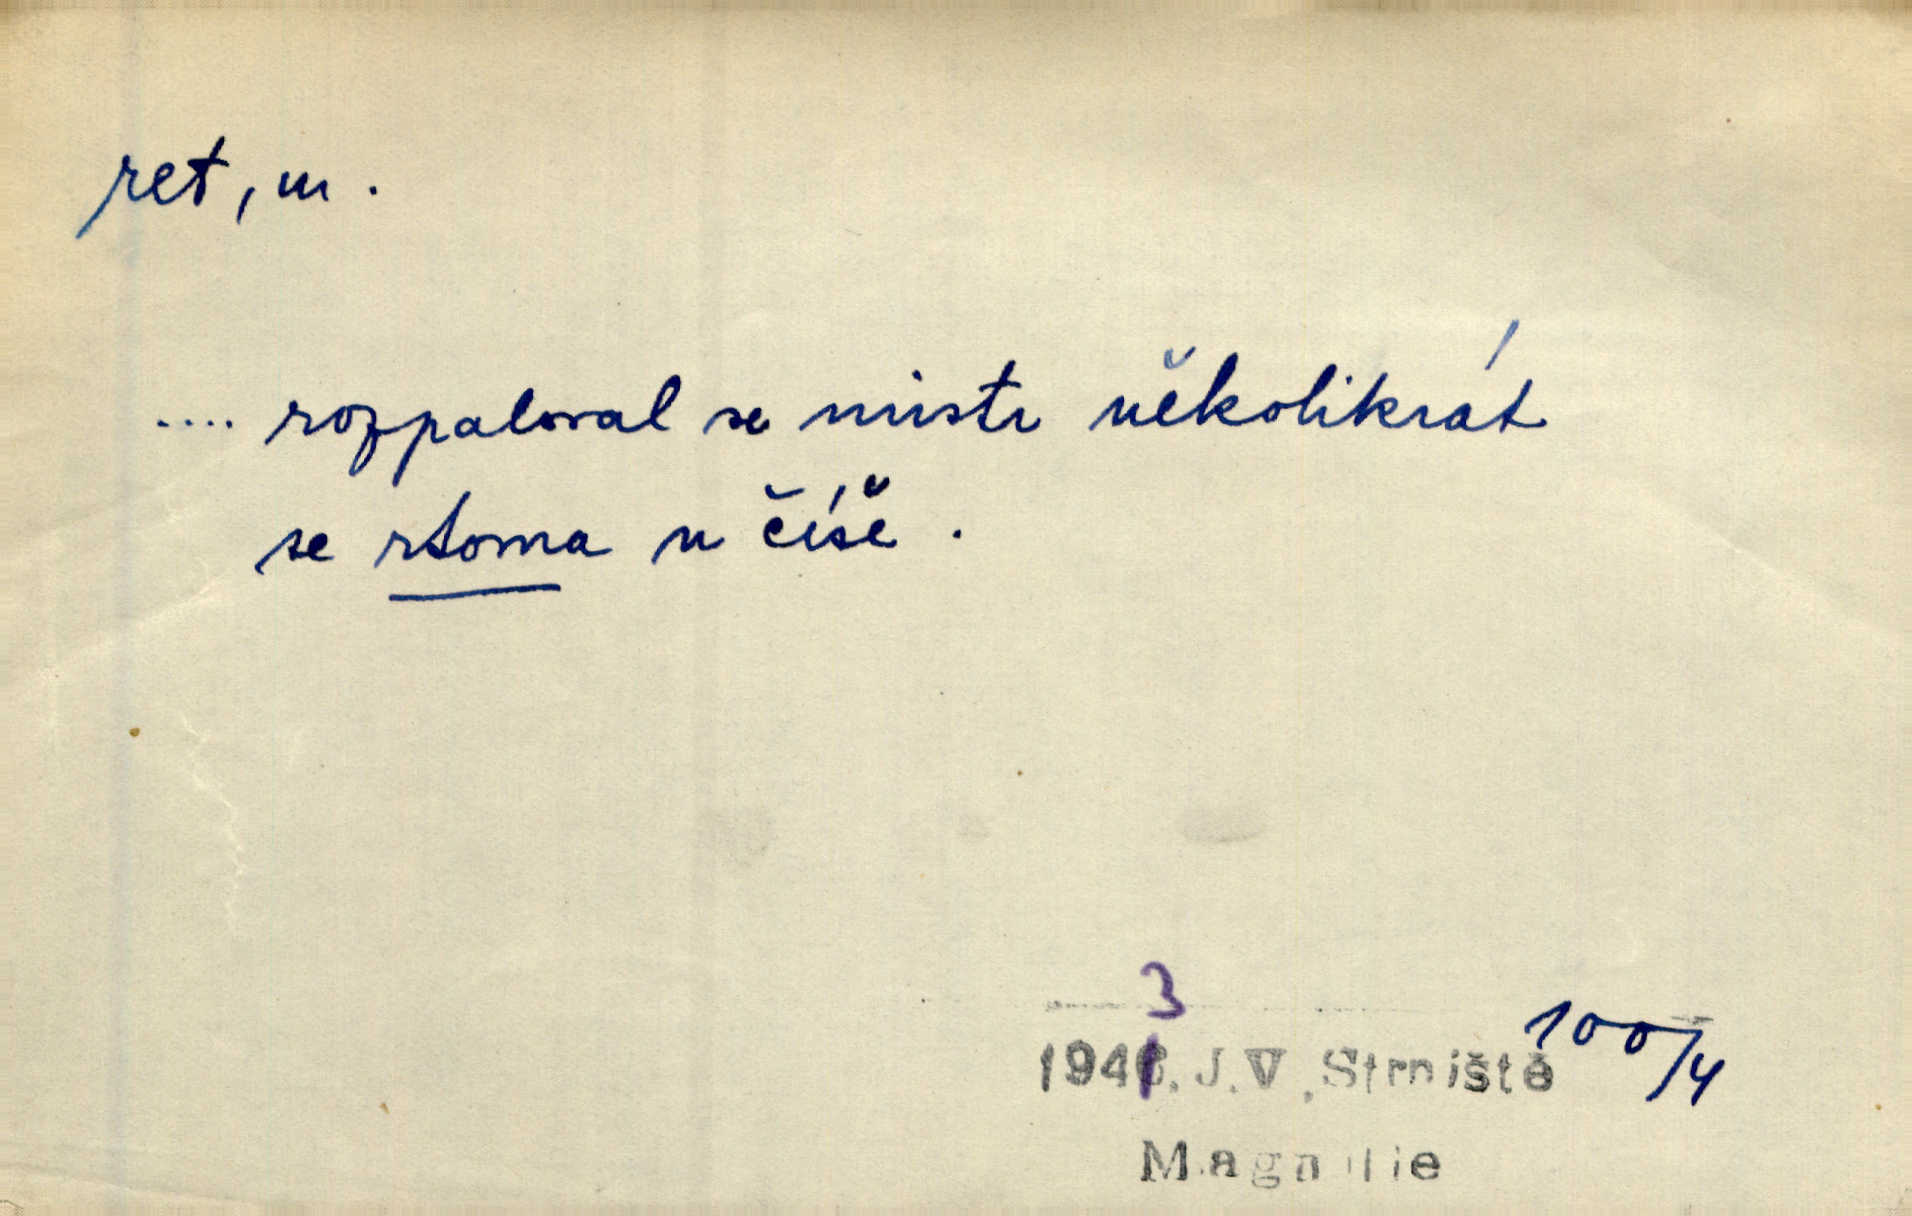 ret, m.
.... rozpaloval se mistr několikrát
se rtoma u číše.
3
1946. J.V. Strniště 100/4
Magnolie